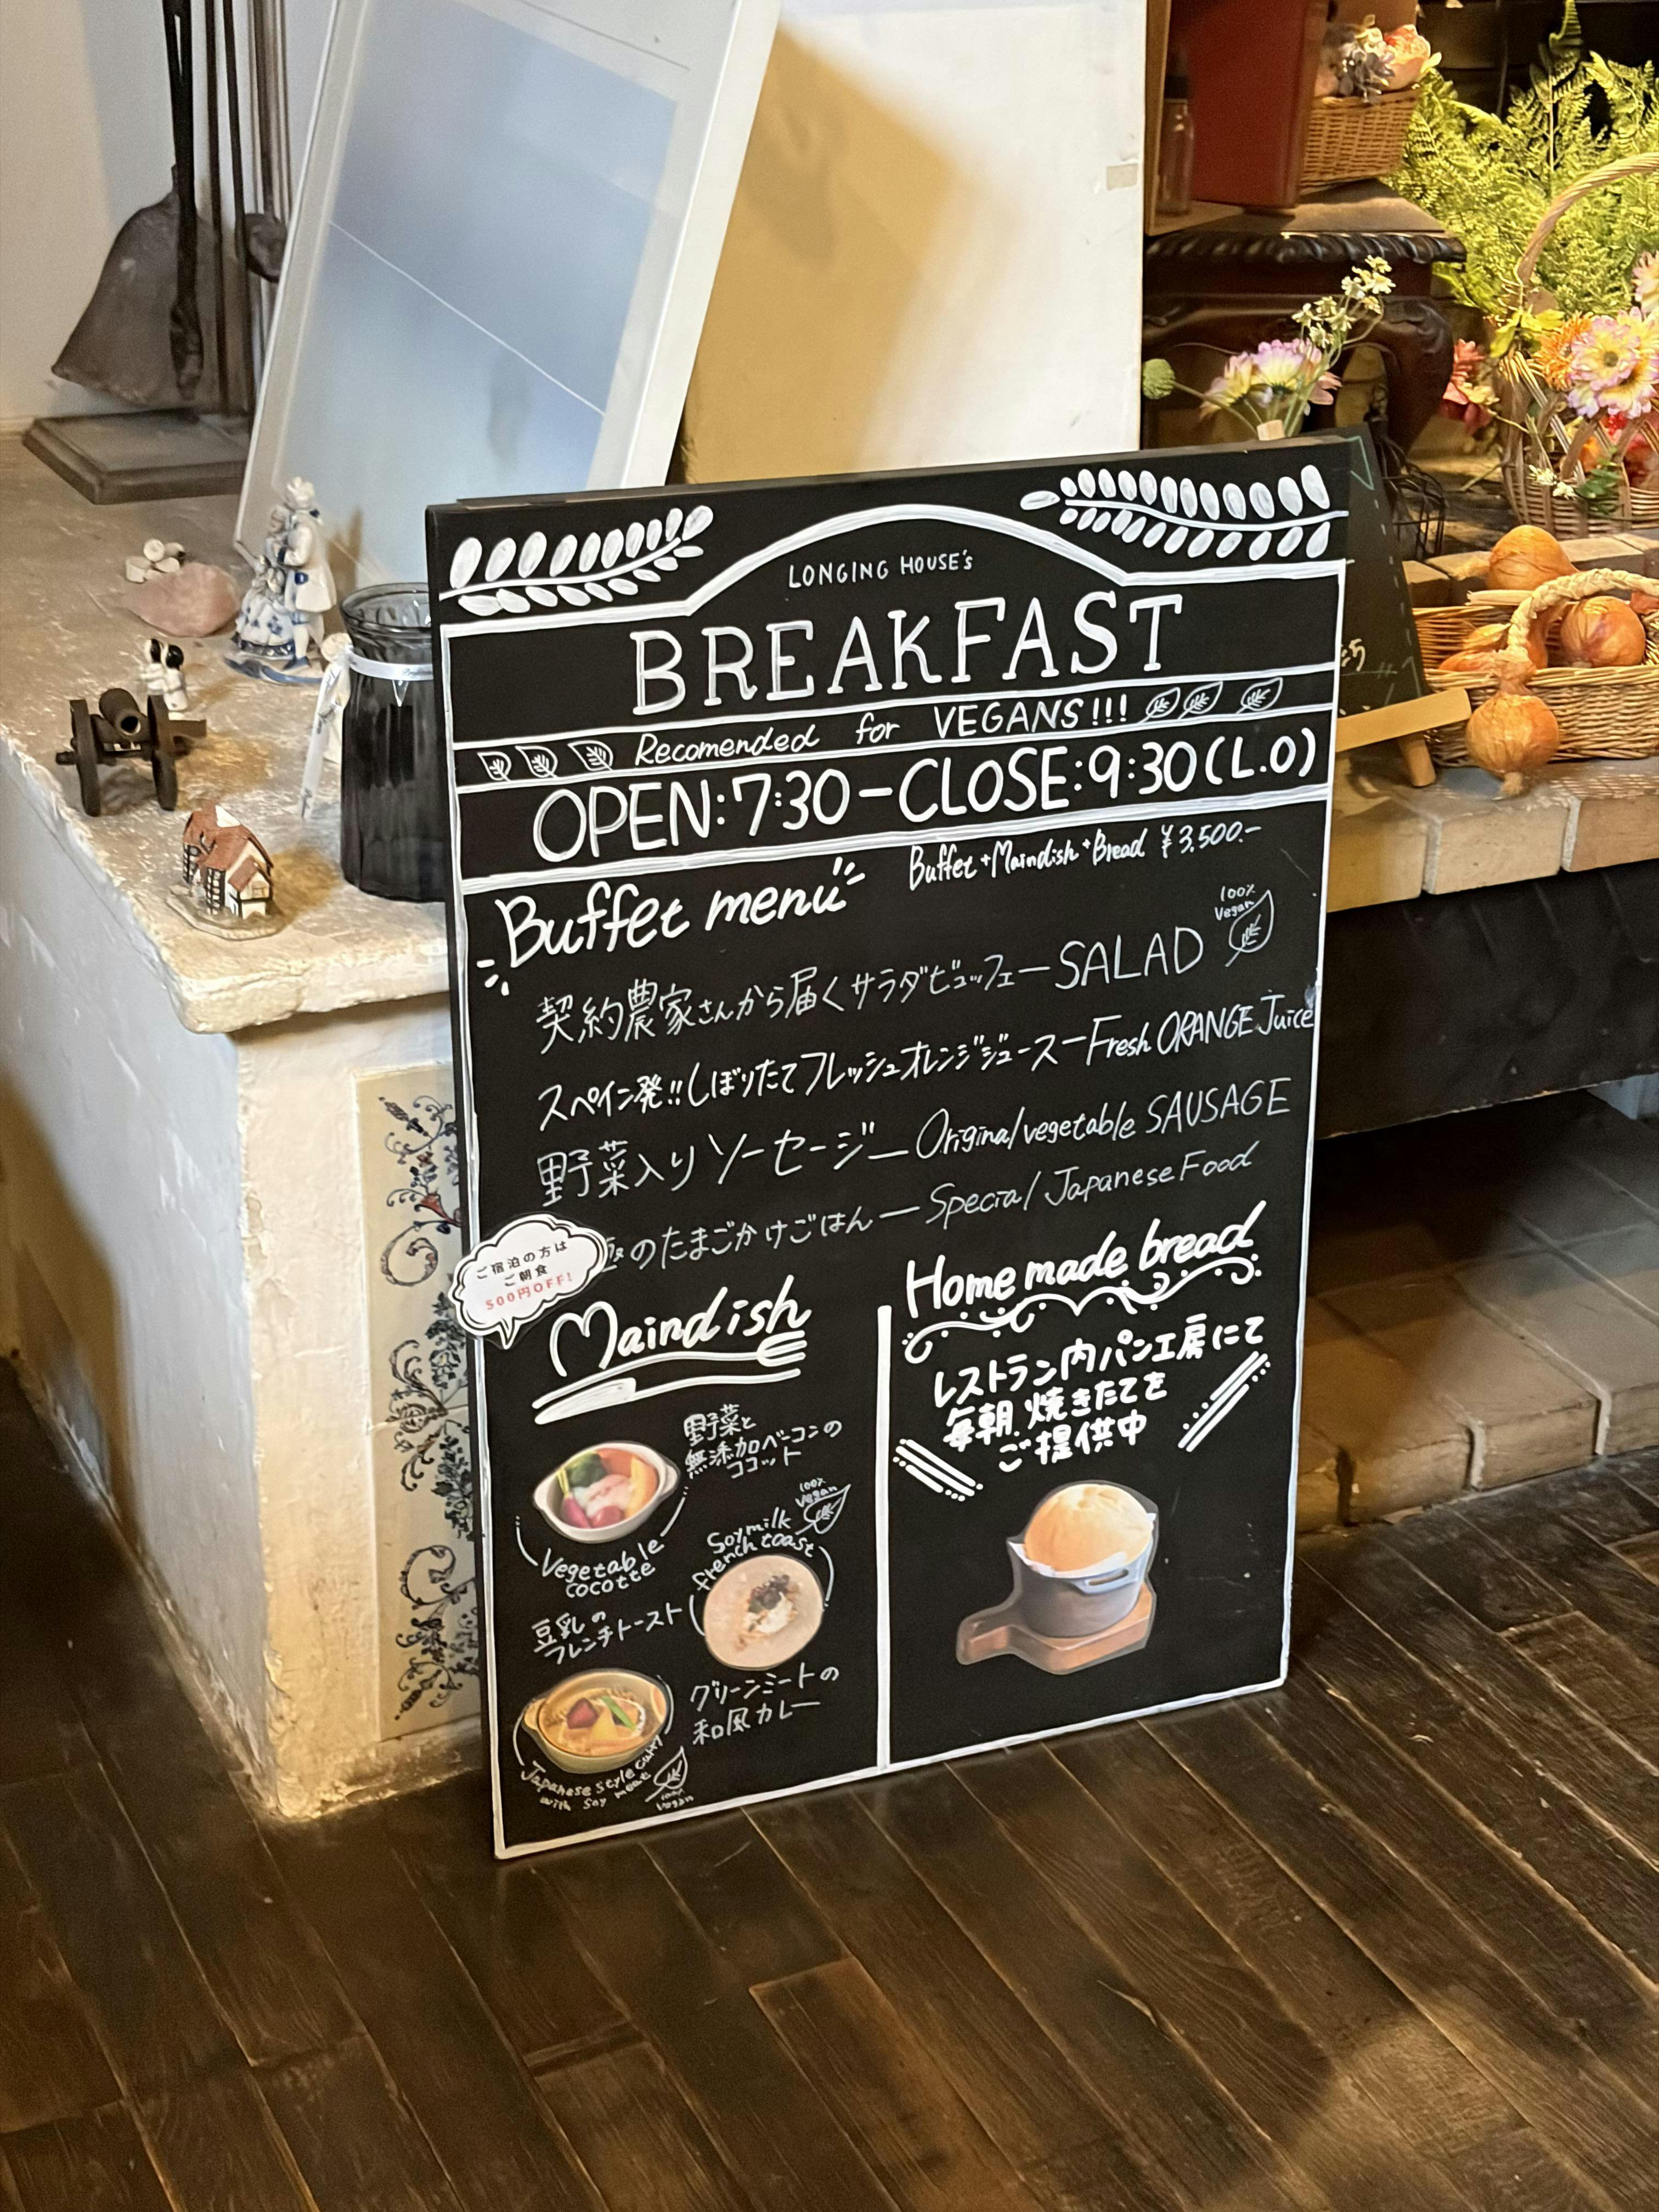 LONGING HOUSE's
BREAKFAST
Recomended for VEGANS!!!
OPEN:7:30-CLOSE:9:30(L.O)
Buffet+Maindish+Bread ¥3,500-
Buffet menu
100% Vegan
契約農家さんから届くサラダビュッフェーSALAD
スペイン発!!しぼりたてフレッシュオレンジジュースーFresh ORANGE Juice
野菜入りソーセージーOriginal vegetable SAUSAGE
のたまごかけごはんーSpecial Japanese Food
ご宿泊の方は
ご朝食
500円OFF!
Maindish
野菜と
無添加ベーコンの
ココット
Vegetable
cocotte
100%
Vegan
Soymilk
french toast
豆乳の
フレンチトースト
グリーンミートの
和風カレー
Japanese style curry
with soy meat
100%
Vegan
Home made bread
レストラン内パン工房にて
毎朝、焼きたてを
ご提供中